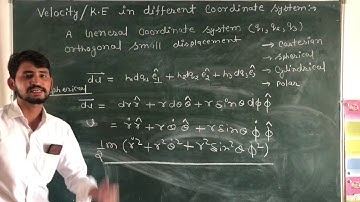 Velocity/K.E in different Coordinate system:-
A General Coordinate system (q1, q2, q3)
orthogonal small displacement
→ Cartesian
→ spherical
→ Cylindrical
→ Polar
du⃗ = h1dq1 ê1 + h2dq2 ê2 + h3dq3 ê3
spherical
du⃗ = dr r̂ + r dθ θ̂ + r sinθ dϕ ϕ̂
v = ṙ r̂ + r θ̇ θ̂ + r sinθ ϕ̇ ϕ̂
1/2 m (ṙ² + r² θ̇² + r² sin²θ ϕ̇²)